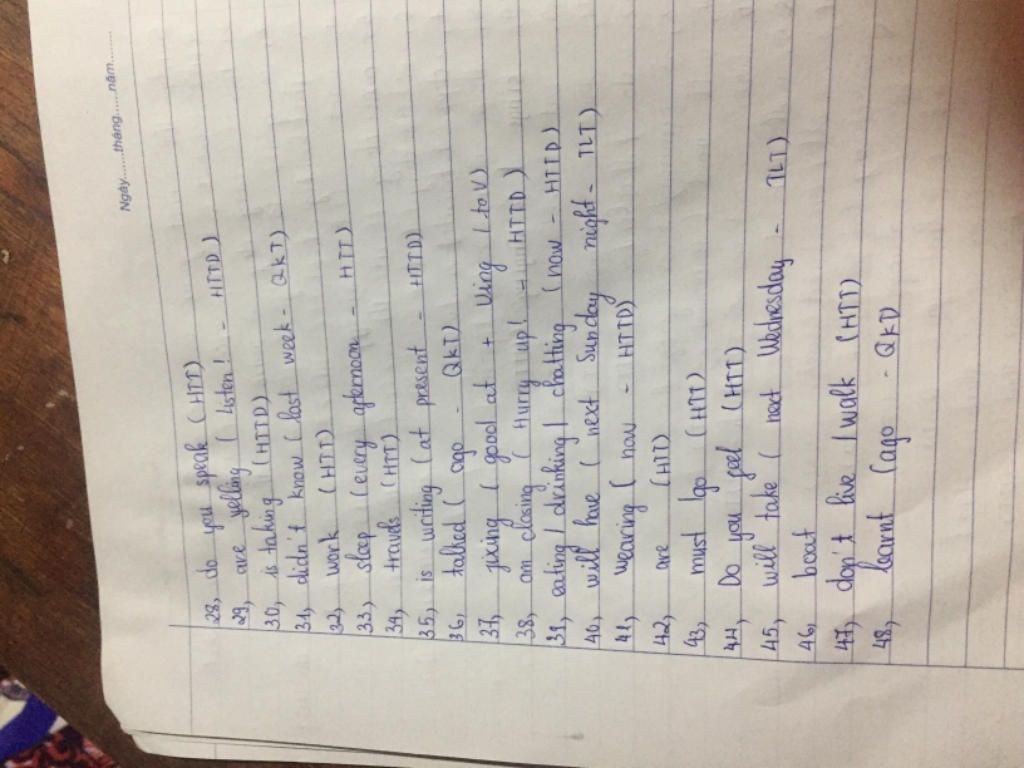 Ngày......tháng......năm......
28, do you speak (HTT)
29, are yelling (Listen! - HTTD)
30, is taking (HTTD)
31, didn't know (last week - QKT)
32, work (HTT)
33, sleep (every afternoon - HTT)
34, travels (HTT)
35, is writing (at present - HTTD)
36, talked (ago - QKT)
37, jixing (good at + Ving / to V)
38, am closing (Hurry up! - HTTD)
39, eating / drinking / chatting (now - HTTD)
40, will have (next Sunday night - TLT)
41, wearing (now - HTTD)
42, are (HTT)
43, must / go (HTT)
44, Do you feel (HTT)
45, will take (next Wednesday - TLT)
46, boat
47, don't live / walk (HTT)
48, learnt (ago - QKD